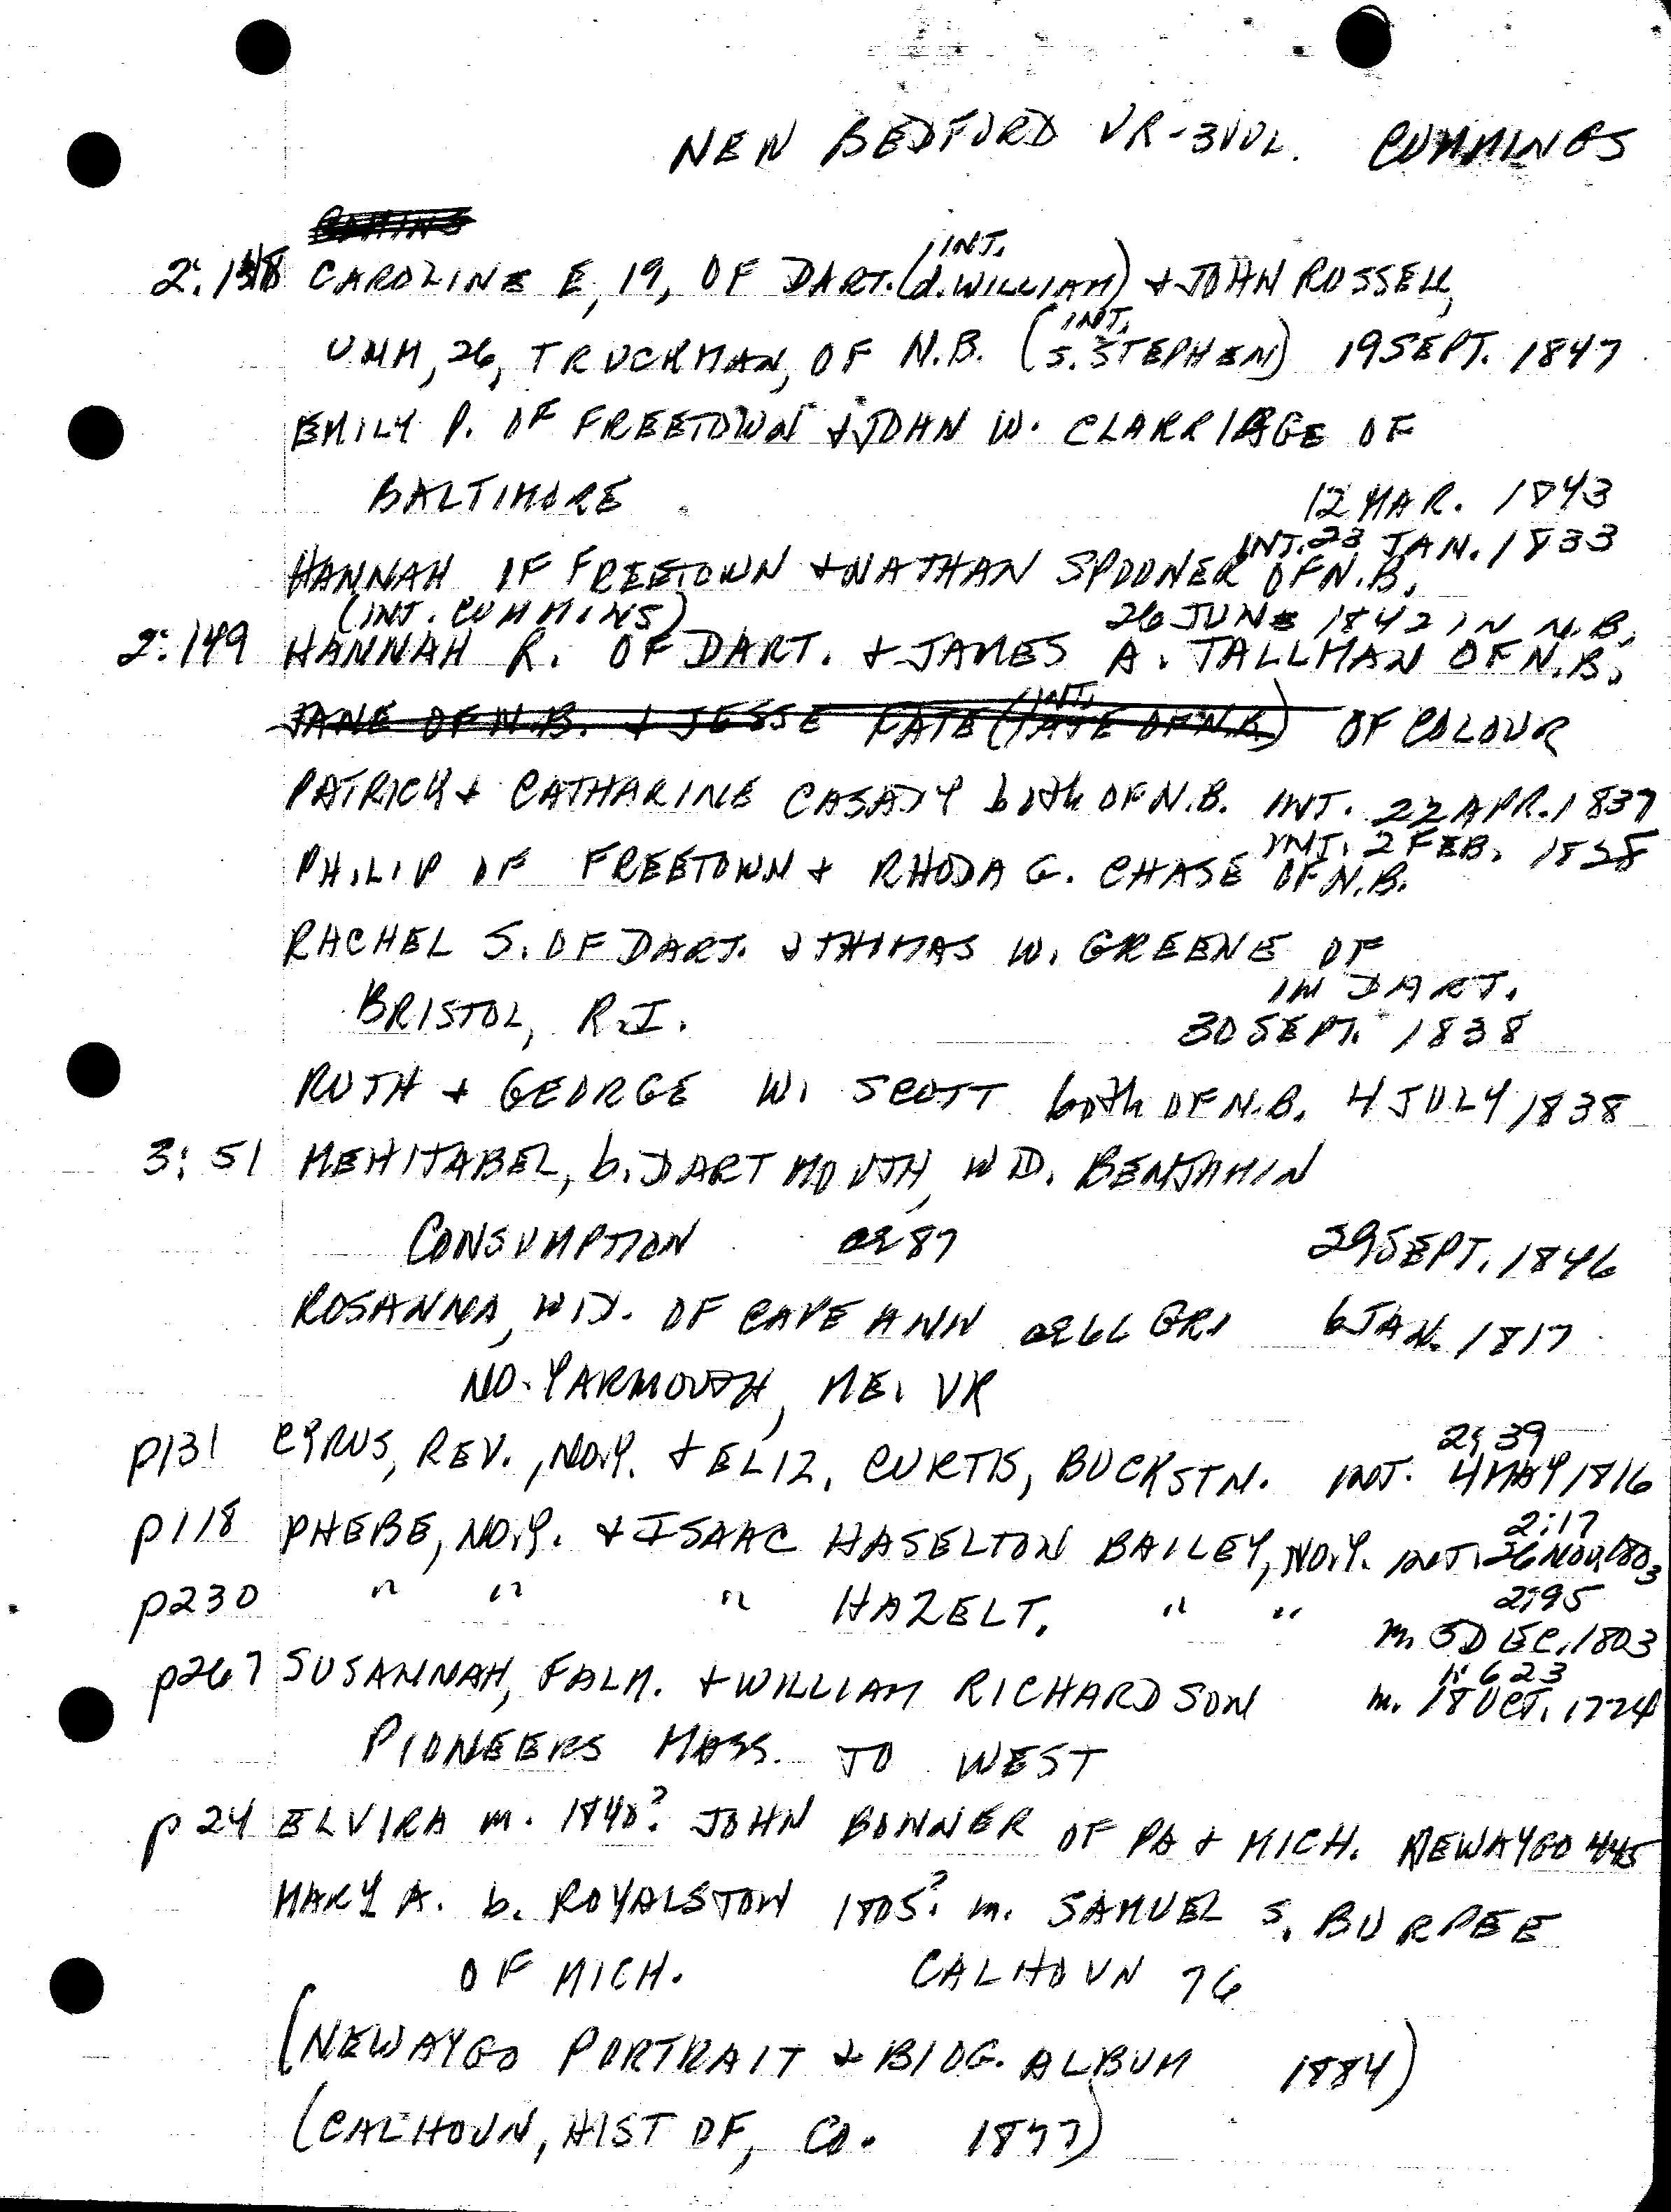 NEW BEDFORD VR-3VOL. CUMMINGS
COMINS
2:148 CAROLINE E, 19, OF DART. (INT. d. WILLIAM) + JOHN RUSSELL,
UNM, 26, TRUCKMAN, OF N.B. (INT. S. STEPHEN) 19 SEPT. 1847
EMILY P. OF FREETOWN + JOHN W. CLARRIAGE OF
BALTIMORE 12 MAR. 1843
INT. 23 JAN. 1833
HANNAH OF FREETOWN + NATHAN SPOONER OF N.B.
(INT. CUMMINS) 26 JUNE 1842 IN N.B.
2:149 HANNAH R. OF DART. + JAMES A. TALLMAN OF N.B.
JANE OF N.B. + JESSE FATE (INT. OF N.B.) OF COLOUR
PATRICK + CATHARINE CASADY both OF N.B. INT. 22 APR. 1837
INT. 2 FEB. 1828
PHILIP OF FREETOWN + RHODA G. CHASE OF N.B.
RACHEL S. OF DART. + THOMAS W. GREENE OF
IN DART.
BRISTOL, R.I. 30 SEPT. 1838
RUTH + GEORGE W. SCOTT both OF N.B. 4 JULY 1838
3:51 MEHITABEL, b. DARTMOUTH, WD. BENJAMIN
CONSUMPTION ae 87 29 SEPT. 1846
ROSANNA, WID. OF CAPE ANN ae 66 GR1 6 JAN. 1817
NO. YARMOUTH, ME. VR
2:39
p131 CYRUS, REV., NO.Y. + ELIZ. CURTIS, BUCKSTN. INT. 4 MAY 1816
2:17
p118 PHEBE, NO.Y. + ISAAC HASELTON BAILEY, NO.Y. INT. 26 NOV. 1803
2:95
p230 " " " HAZELT. " " m. 5 DEC. 1803
1:623
p267 SUSANNAH, FALM. + WILLIAM RICHARDSON m. 18 OCT. 1724
PIONEERS MASS. TO WEST
p24 ELVIRA m. 1840? JOHN BONNER OF PA + MICH. NEWAYGO 445
MARY A. b. ROYALSTON 1805? m. SAMUEL S. BURPEE
OF MICH. CALHOUN 76
(NEWAYGO PORTRAIT + BIOG. ALBUM 1884)
(CALHOUN, HIST OF, CO. 1877)